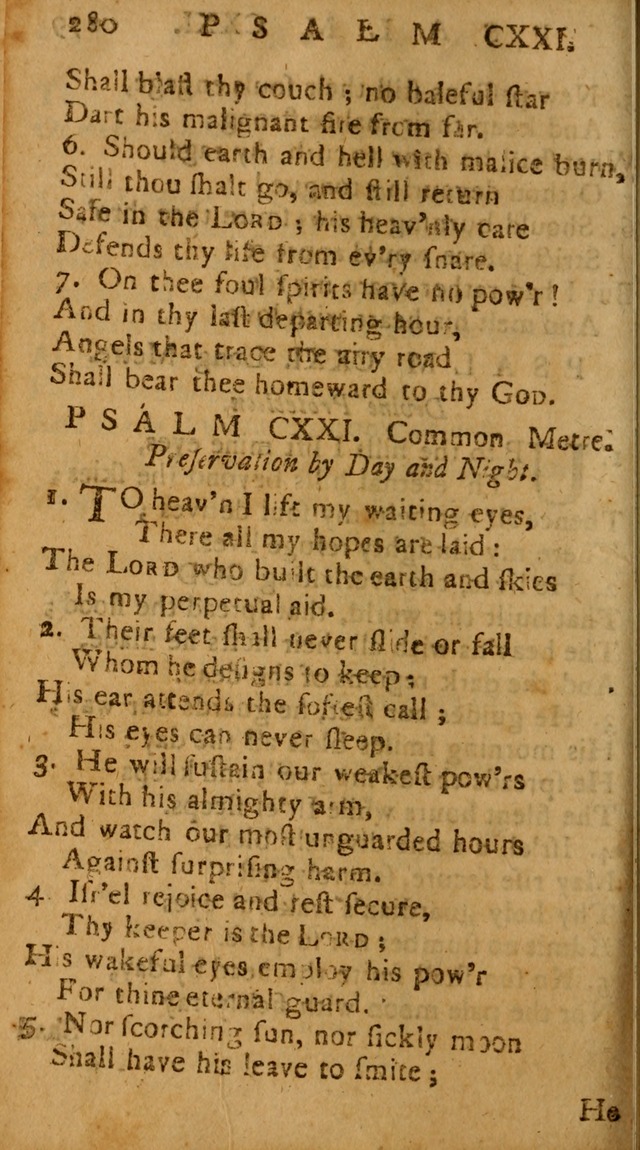 280 PSALM CXXI.
Shall blaſt thy couch ; no baleful ſtar
Dart his malignant fire from far.
6. Should earth and hell with malice burn,
Still thou ſhalt go, and ſtill return
Safe in the LORD ; his heav'nly care
Defends thy life from ev'ry ſnare.
7. On thee foul ſpirits have no pow'r !
And in thy laſt departing hour,
Angels that trace the airy road
Shall bear thee homeward to thy GOD.
PSALM CXXI. Common Metre.
Preſervation by Day and Night.
1. TO heav'n I lift my waiting eyes,
There all my hopes are laid :
The LORD who built the earth and ſkies
Is my perpetual aid.
2. Their feet ſhall never ſlide or fall
Whom he deſigns to keep ;
His ear attends the ſofteſt call ;
His eyes can never ſleep.
3. He will ſuſtain our weakeſt pow'rs
With his almighty arm,
And watch our moſt unguarded hours
Againſt ſurpriſing harm.
4 Iſr'el rejoice and reſt ſecure,
Thy keeper is the LORD ;
His wakeful eyes employ his pow'r
For thine eternal guard.
5. Nor ſcorching ſun, nor ſickly moon
Shall have his leave to ſmite ;
He